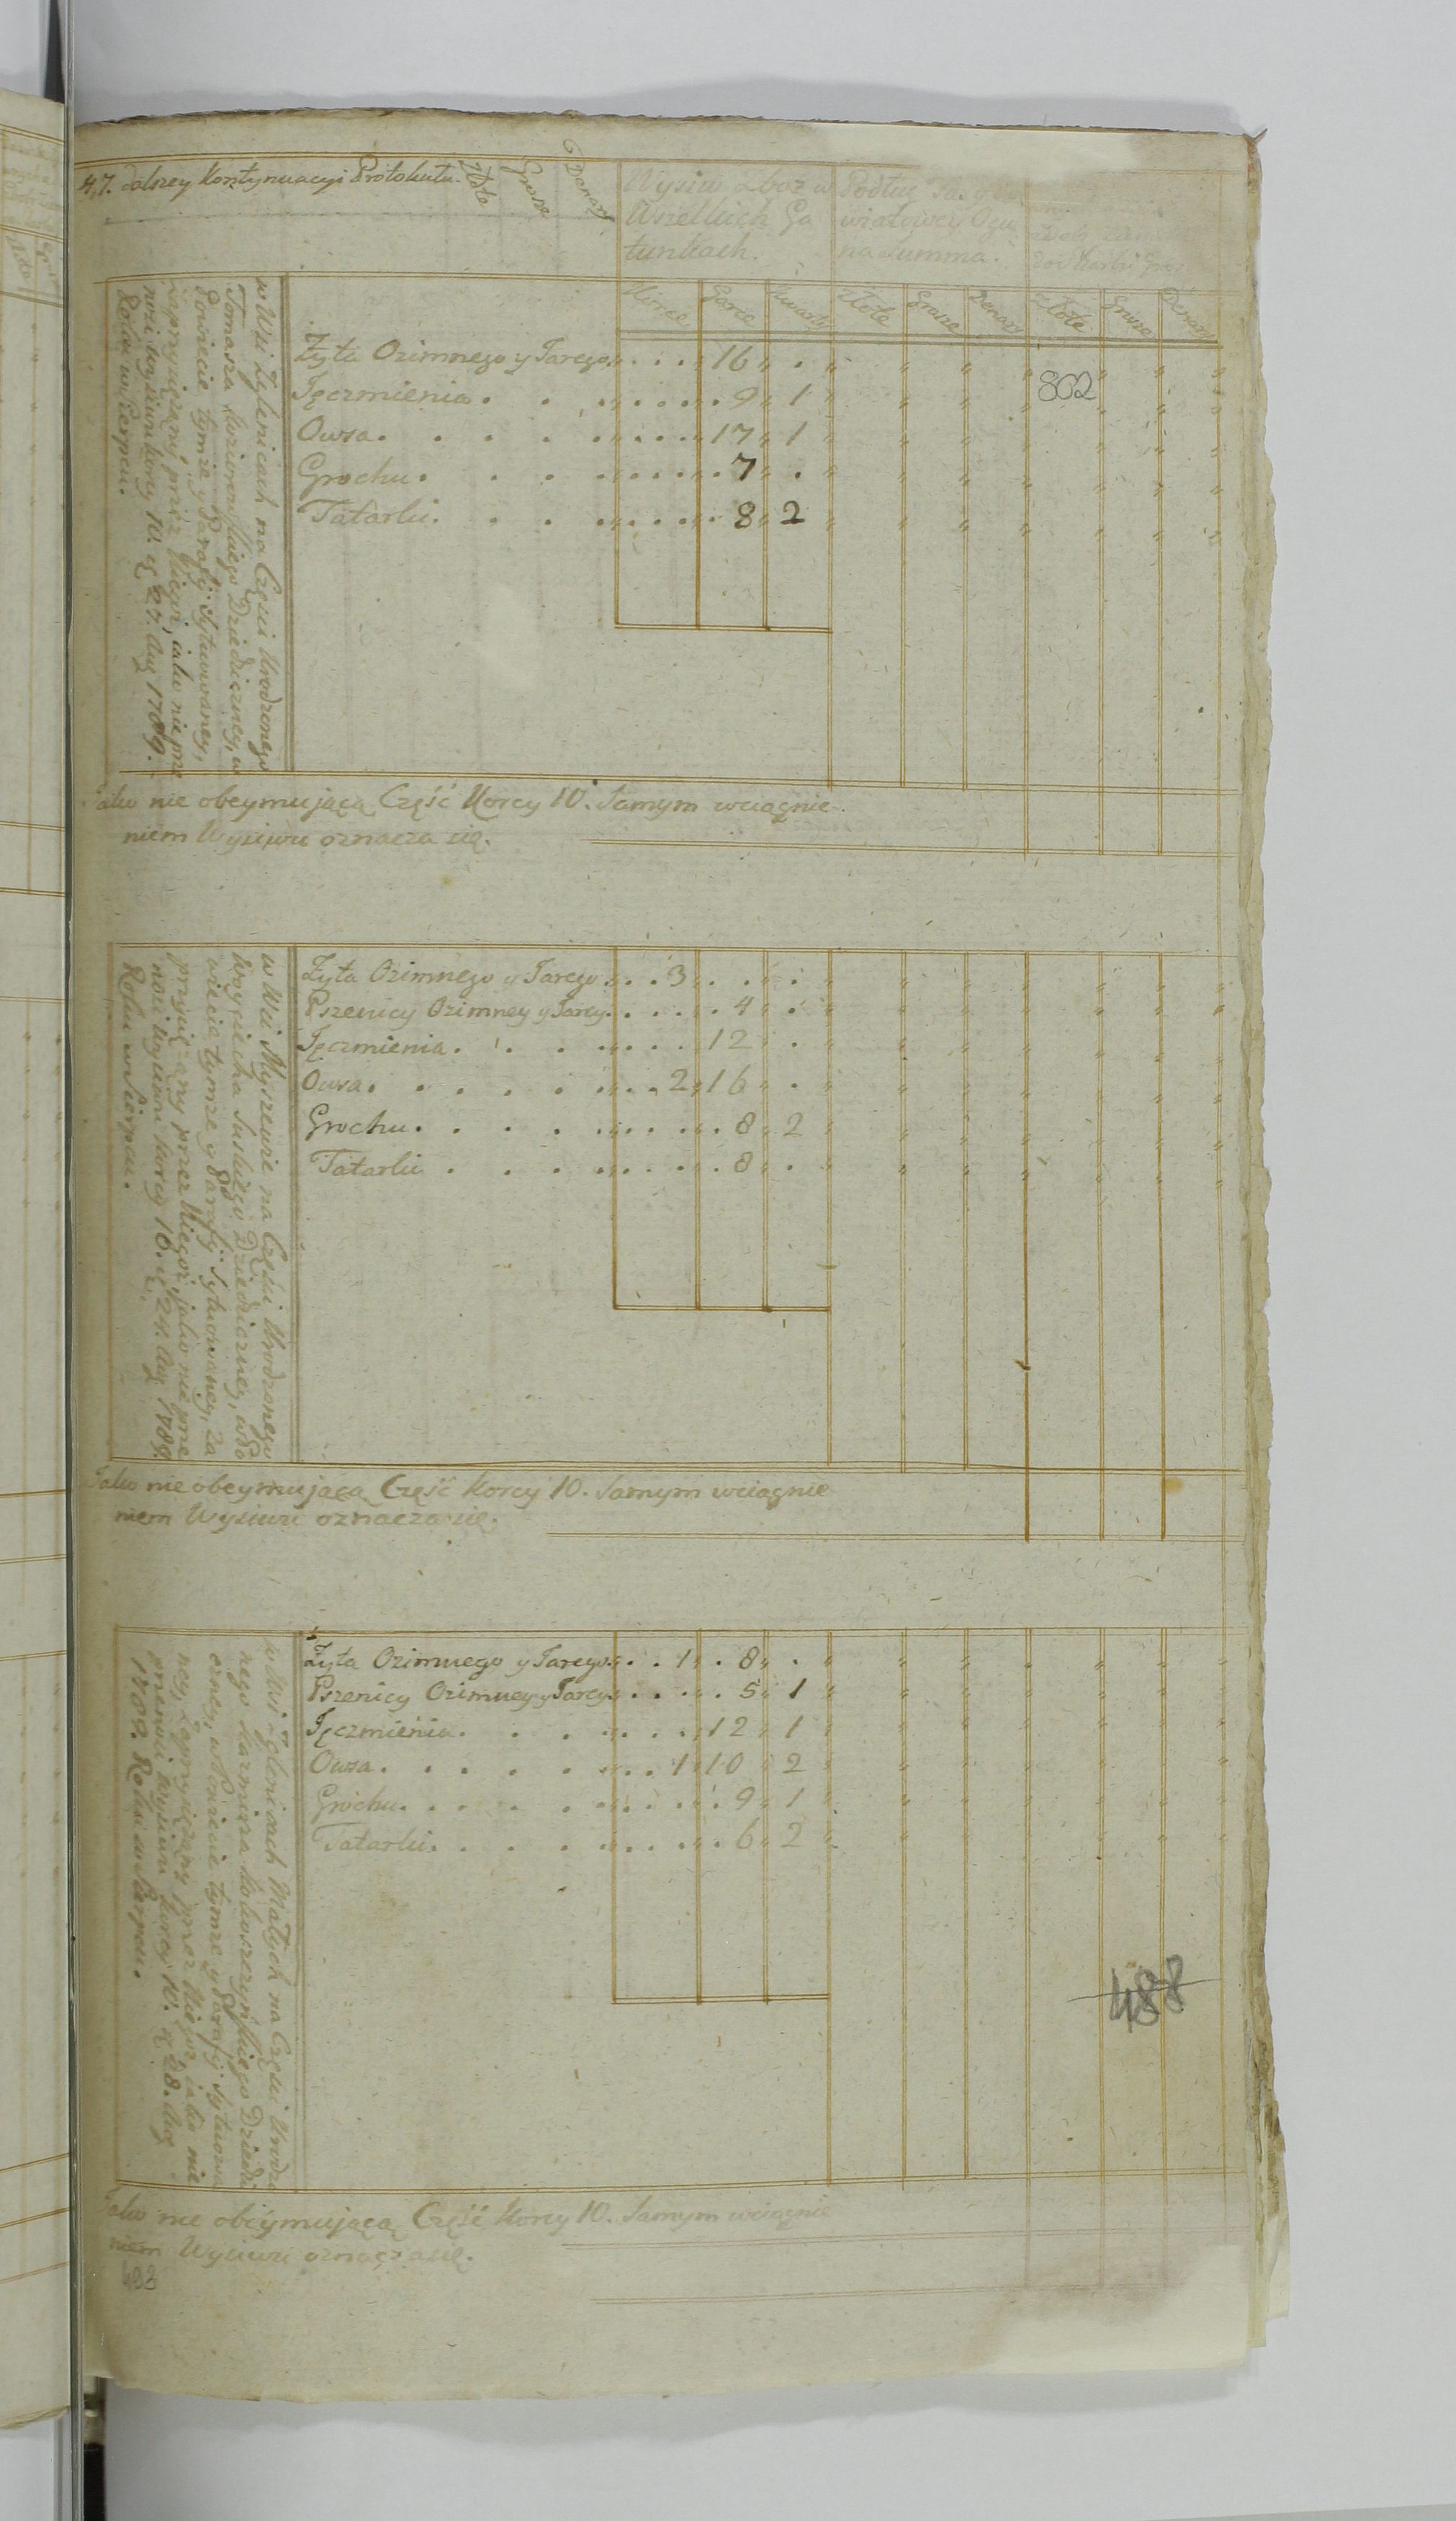 47. dalszey kontynuacyi Protokułu. Złote Grosze Denary
Wysiw zboz w
Wszelkich Ga
tunkach.
Podług
wiatowey
na Summa.
Korce Garce Kwarty Złote Grosze Denary Złote Grosze Denary
802
w Wsi na Części Urodzonego
Tomasza Dziedziczney, w
Powiecie tymże y Parafij Sytuowaney,
zaprzysiężony przez Niegoż, jako nie prze
nosi Wysiwu korcy 10. 27. Aug 1789.
Roku w Sierpcu.
Żyta Ozimnego y Jarego 16 .
Jęczmienia. 9 1
Owsa. 17 1
Grochu. 7 .
Tatarki. 8 2
Jako nie obeymującą Część Korcy 10. Samym wciągnie
niem Wysiwu oznacza się.
w Wsi Myszewie na Części Urodzonego
Woyciecha Dziedziczney, w Po
wiecie tymże y Parafij Sytuowaney, za
przysiężony przez Niegoż, jako nie prze
nosi Wysiwu korcy 10. 24. Aug 1789.
Roku w Sierpcu.
Żyta Ozimnego y Jarego 3 . .
Pszenicy Ozimney y Jarey. 4 .
Jęczmienia. 12 .
Owsa. 2 16 .
Grochu. 8 2
Tatarki . 8 .
Jako nie obeymującą Część Korcy 10. Samym wciągnie
niem Wysiwu oznacza się.
w Wsi Małych na Części Urodzo
nego Kazmirza Dziedzi
czney, w Powiecie tymże y Parafij Sytuowa
ney, zaprzysiężony przez Niegoż, jako nie
przenosi Wysiwu korcy 10. 28. Aug
1789. Roku w Sierpcu.
Żyta Ozimnego y Jarego 1 8 .
Pszenicy Ozimney y Jarey 5 1
Jęczmienia. 12 1
Owsa. 1 10 2
Grochu. 9 1
Tatarki. 6 2
488
Jako nie obeymującą Część Korcy 10. Samym wciągnie
niem Wysiwu oznacza się.